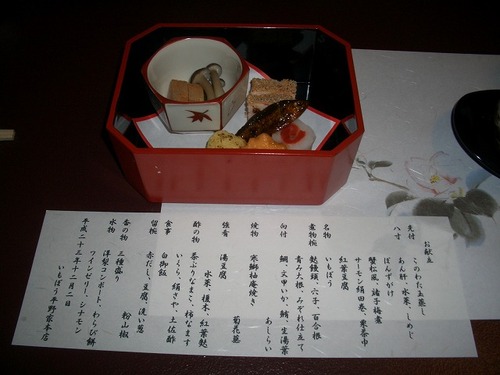 お献立
先付 このわた玉蒸し
あん肝、水菜、しめじ
ぽんずがけ
八寸 蟹松風、諸子梅煮
サーモン絹田巻、東寺巾
紅葉豆腐
名物 いもぼう
煮物椀 飽饅頭、穴子、百合根
青み大根、みぞれ仕立て
向付 鯛、文甲いか、鮪、生湯葉
あしらい
焼物 寒鰤柚庵焼き
菊花蕪
強肴 湯豆腐
水菜、榎木、紅葉麩
酢の物 茶ぶりなまこ、柿なます
いくら、絹さや、土佐酢
食事 白御飯
留椀 赤だし、豆腐、浅い葱
香の物 三種盛り 粉山椒
水物 洋梨コンポート、わらび餅
ワインゼリー、シナモン
平成二十三年十二月二日
いもぼう平野家本店